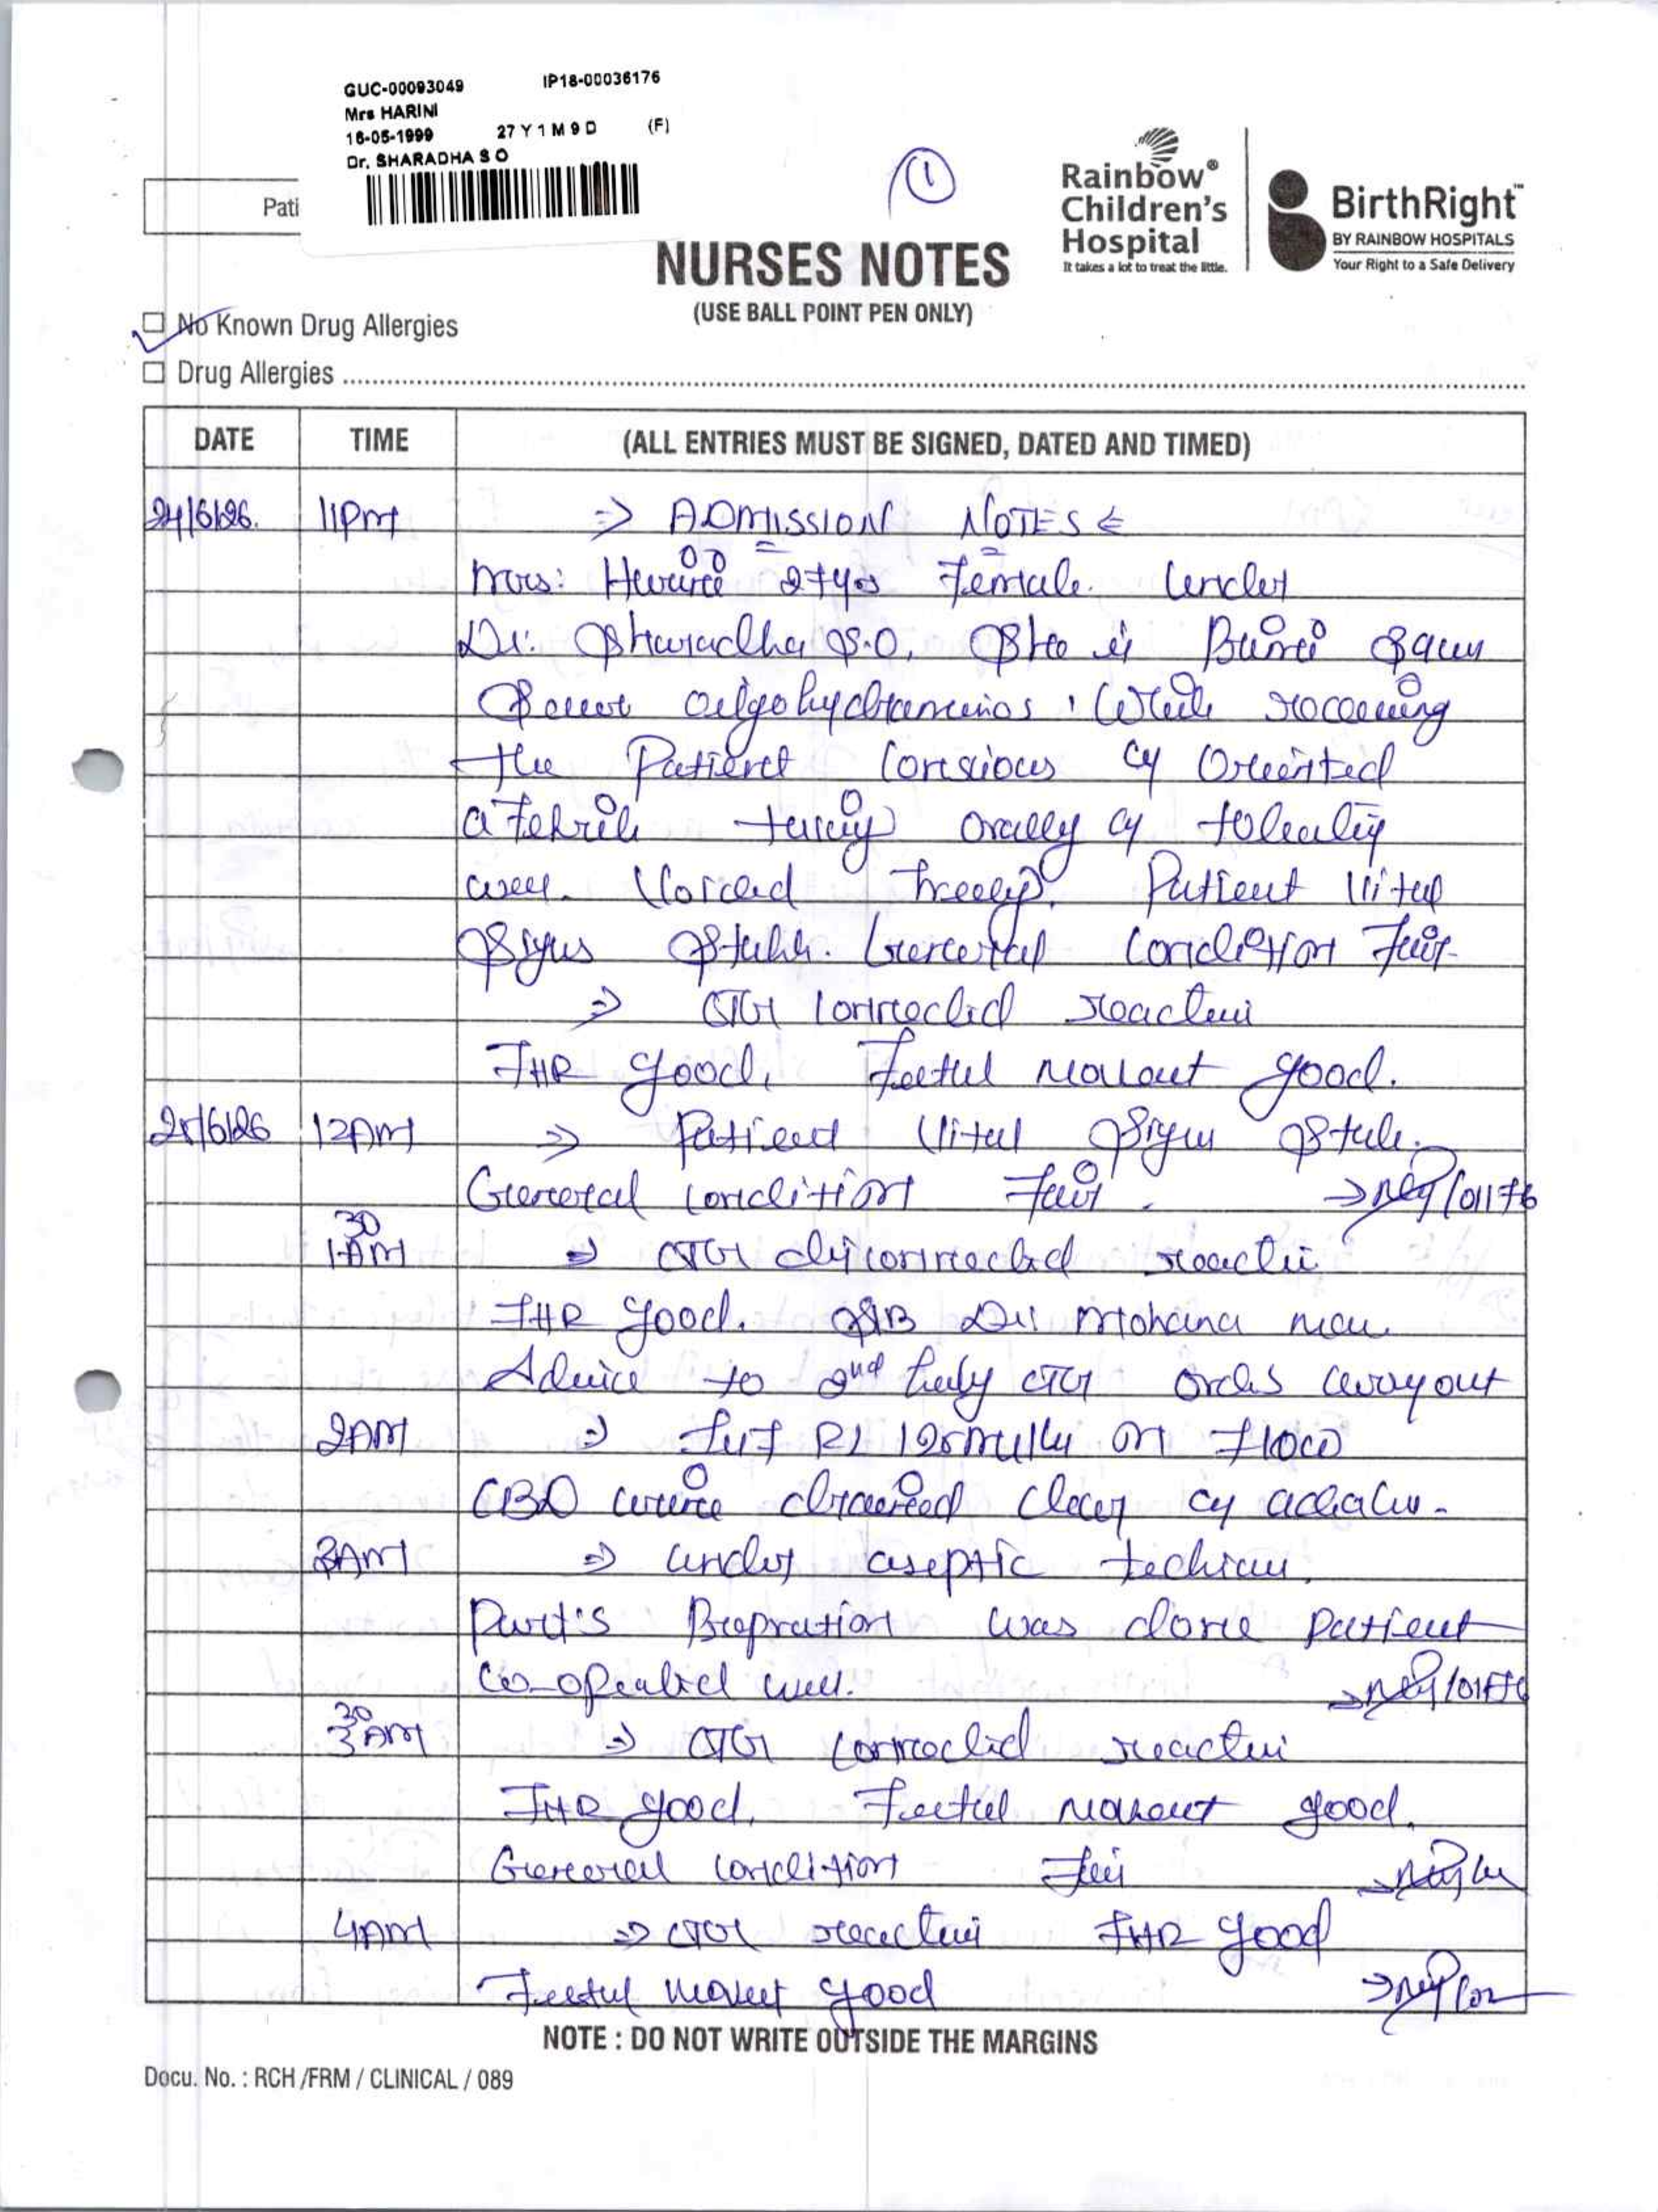 GUC-00093049 IP18-00036176
Mrs HARINI
16-05-1999 27 Y 1 M 9 D (F)
Dr. SHARADHA S O
1
Pati
Rainbow®
Children's
Hospital
It takes a lot to treat the little.
BirthRight™
BY RAINBOW HOSPITALS
Your Right to a Safe Delivery
NURSES NOTES
(USE BALL POINT PEN ONLY)
No Known Drug Allergies
Drug Allergies
DATE TIME (ALL ENTRIES MUST BE SIGNED, DATED AND TIMED)
24/6/26. 11PM ⇒ ADMISSION NOTES ⇐
Mrs: Harini 27yrs Female. Under
Dr. Sharadha S.O. She is
oligohydramnios. While receiving
the Patient Consious Oriented
afebrile orally
well. Voiced freely. Patient Vital
Signs Stable. General Condition Fair
⇒ CTG Connected reactive
FHR good, Foetal good.
25/6/26 12AM ⇒ Patient Vital Signs
General Condition Fair. → /01176
1 30 AM ⇒ CTG disconnected reactive
FHR good. S/B Dr. Mohana
Advice to 2nd CTG orders carryout
2AM ⇒ RL on flow
CBD urine drained clear
3AM ⇒ Under aseptic
Part's Prepration was done Patient
Co-operated well.
3 30 AM ⇒ CTG connected reactive
FHR good, Foetal good.
General condition Fair
4AM ⇒ CTG reactive FHR good
Foetal good
NOTE : DO NOT WRITE OUTSIDE THE MARGINS
Docu. No. : RCH /FRM / CLINICAL / 089